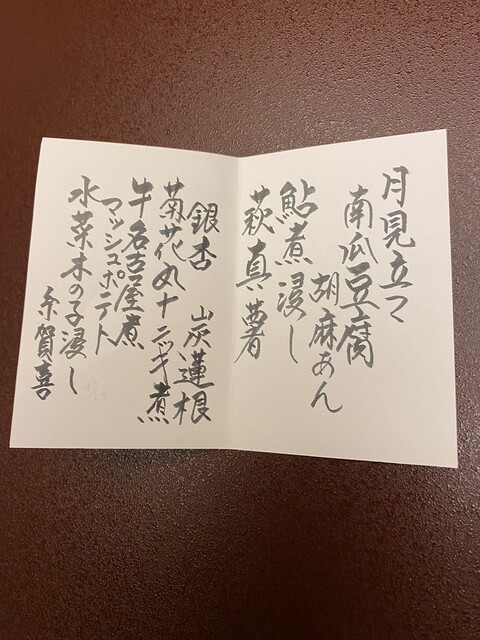 月見立て
南瓜豆腐
胡麻あん
鮎煮浸し
萩真薯
銀杏 炭蓮根
菊花丸十ニッキ煮
牛名古屋煮
マッシュポテト
水菜木の子浸し
糸賀喜